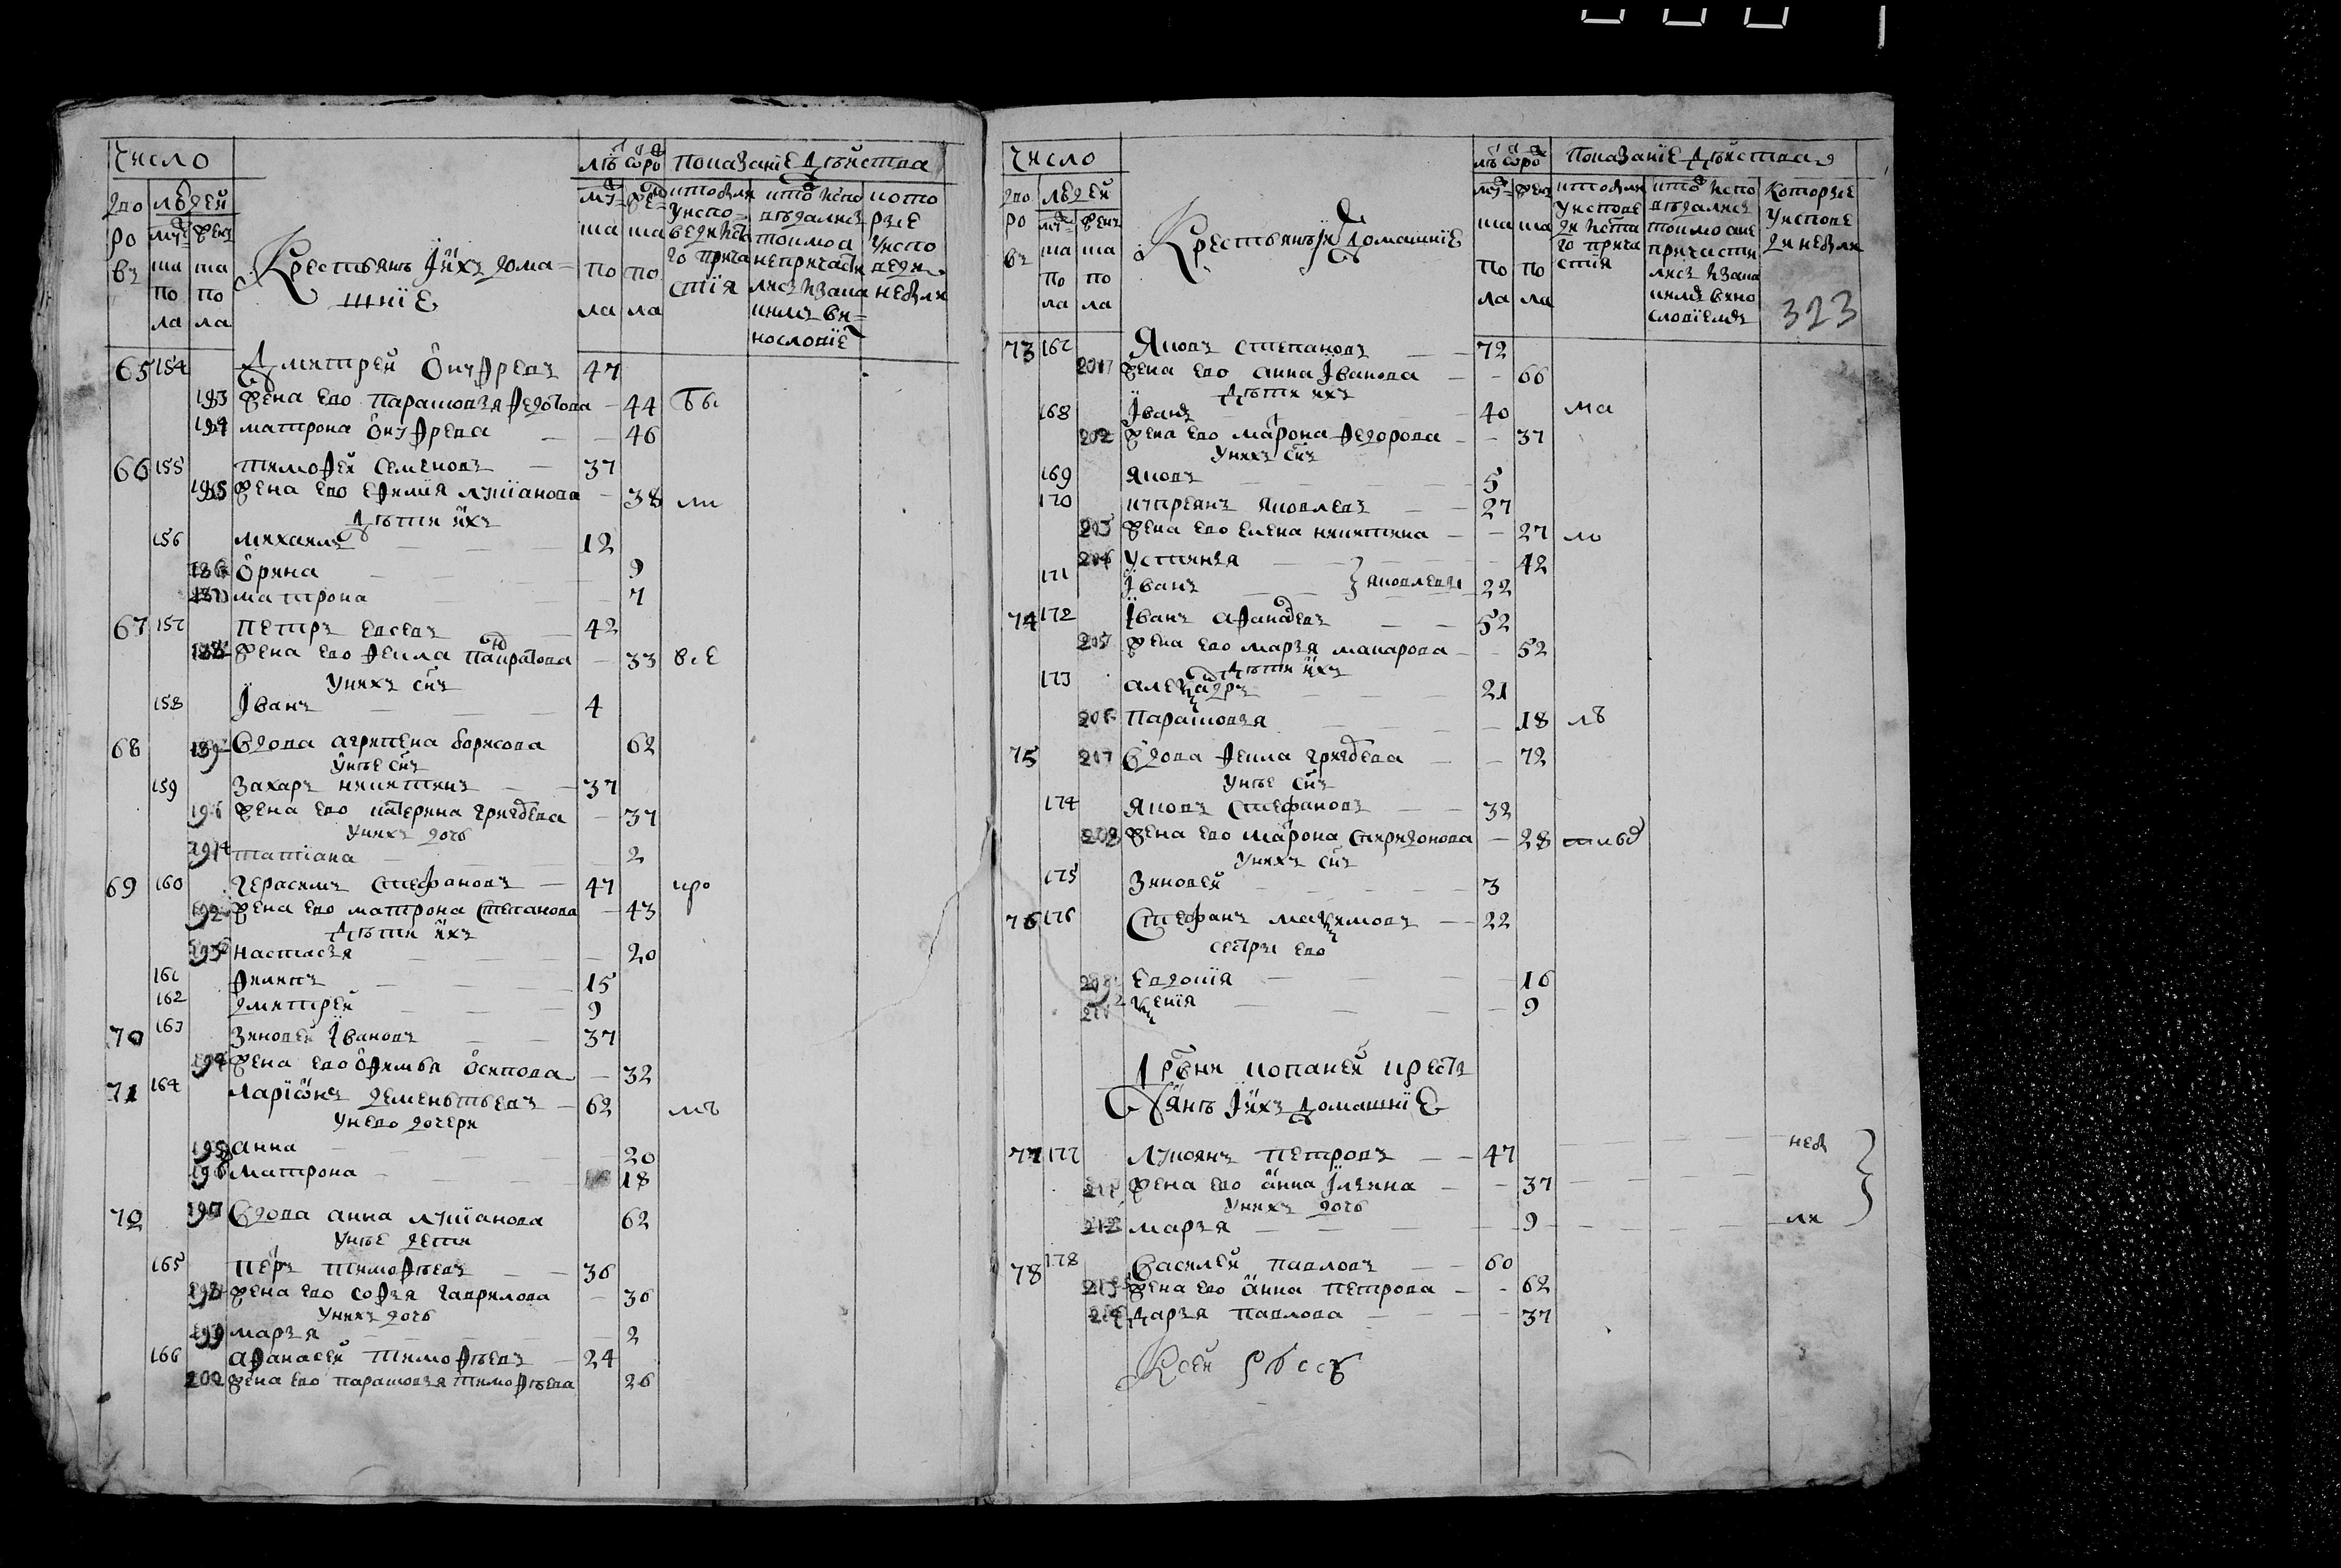 число
лѣ сꙋро показанїе дѣйства
дво ро въ
людей
муж ска по ла
жен ска по ла
Крестьянъ и ихъ дома-
шнїе
муж ска по ла
жен ска по ла
кто были у испо-
веди и ста
го прича
стїя
кто испо
ведались
токмо а
не причасти
лись и за ка
кимъ ви-
нословїе
кото
рые
у испо
веди
не были
65 154 Дмитрей Онуфревъ 47
193 жена ево парасковья федотова 44 бы
194 матрона онуфрева 46
66 155 тимофей семеновъ 37
195 жена ево ефимия лукїанова 38 ли
дѣти ихъ
156 михаилъ 12
186 орина 9
матрона 7
67 157 петръ евсевъ 42
188 жена ево фекла панкратова 33 все
у нихъ снъ
158 Їванъ 4
68 189 вдова агрипена борисова 62
у нѣе снъ
159 захаръ никитинъ 37
жена ево катерина григорева 37
у нихъ дочь
191 татїана 2
69 160 герасимъ стефановъ 47 кро
192 жена ево матрона степанова 43
дѣти ихъ
193 настасья 20
161 филипъ 15
162 дмитрей 9
70 163 зиновей Ївановъ 37
194 жена ево офимья осипова 32
71 164 ларїонъ дементьевъ 62 мъ
у нево дочери
195 анна 20
196 матрона 18
72 197 вдова анна лукїанова 62
у нѣе дети
165 петръ тимофѣевъ 36
198 жена ево софья гаврилова 36
у нихъ дочь
199 марья 2
166 афанасей тимофѣевъ 24
200 жена ево парасковья тимофѣева 26
число
лѣ сꙋро показанїе дѣйства
дво ро въ
людей
муж ска по ла
жен ска по ла
Крестьянъ и ихъ домашнїе
муж ска по ла
жен ска по ла
кто были
у испове
ди и ста
го прича
стия
кто испо
ведались
токмо а не
причасти
лись и за ка
кимъ вино
словїемъ
которые
у испове
ди не были
323
73 167 Яковъ степановъ 72
201 жена ево анна Їванова 66
дѣти ихъ
168 Їванъ 40 ма
202 жена ево матрона федорова 37
у нихъ снъ
169 яковъ 5
170 купреянъ яковлевъ 27
203 жена ево елена никитина 27 ло
204 устинья 42
171 Їванъ } яковлевы 22
74 172 Їванъ афанасевъ 52
205 жена ево марья макарова 52
дѣти ихъ
173 александръ 21
206 парасковья 18 лѣ
75 207 вдова фекла григорева 72
у нѣе снъ
174 яковъ стефановъ 32
208 жена ево матрона спиридонова 28
у нихъ снъ
175 зиновей 3
76 176 стефанъ максимовъ 22
сестры ево
209 евдокїя 16
ксенїя 9
дрвни копаней кресть
янъ и ихъ домашнїе
77 177 лукоянъ петровъ 47 не бы
211 жена ево анна Їльина 37
у нихъ дочь
212 марья 9 ли
78 178 василей павловъ 60
213 жена ево анна петрова 62
214 дарья павлова 37